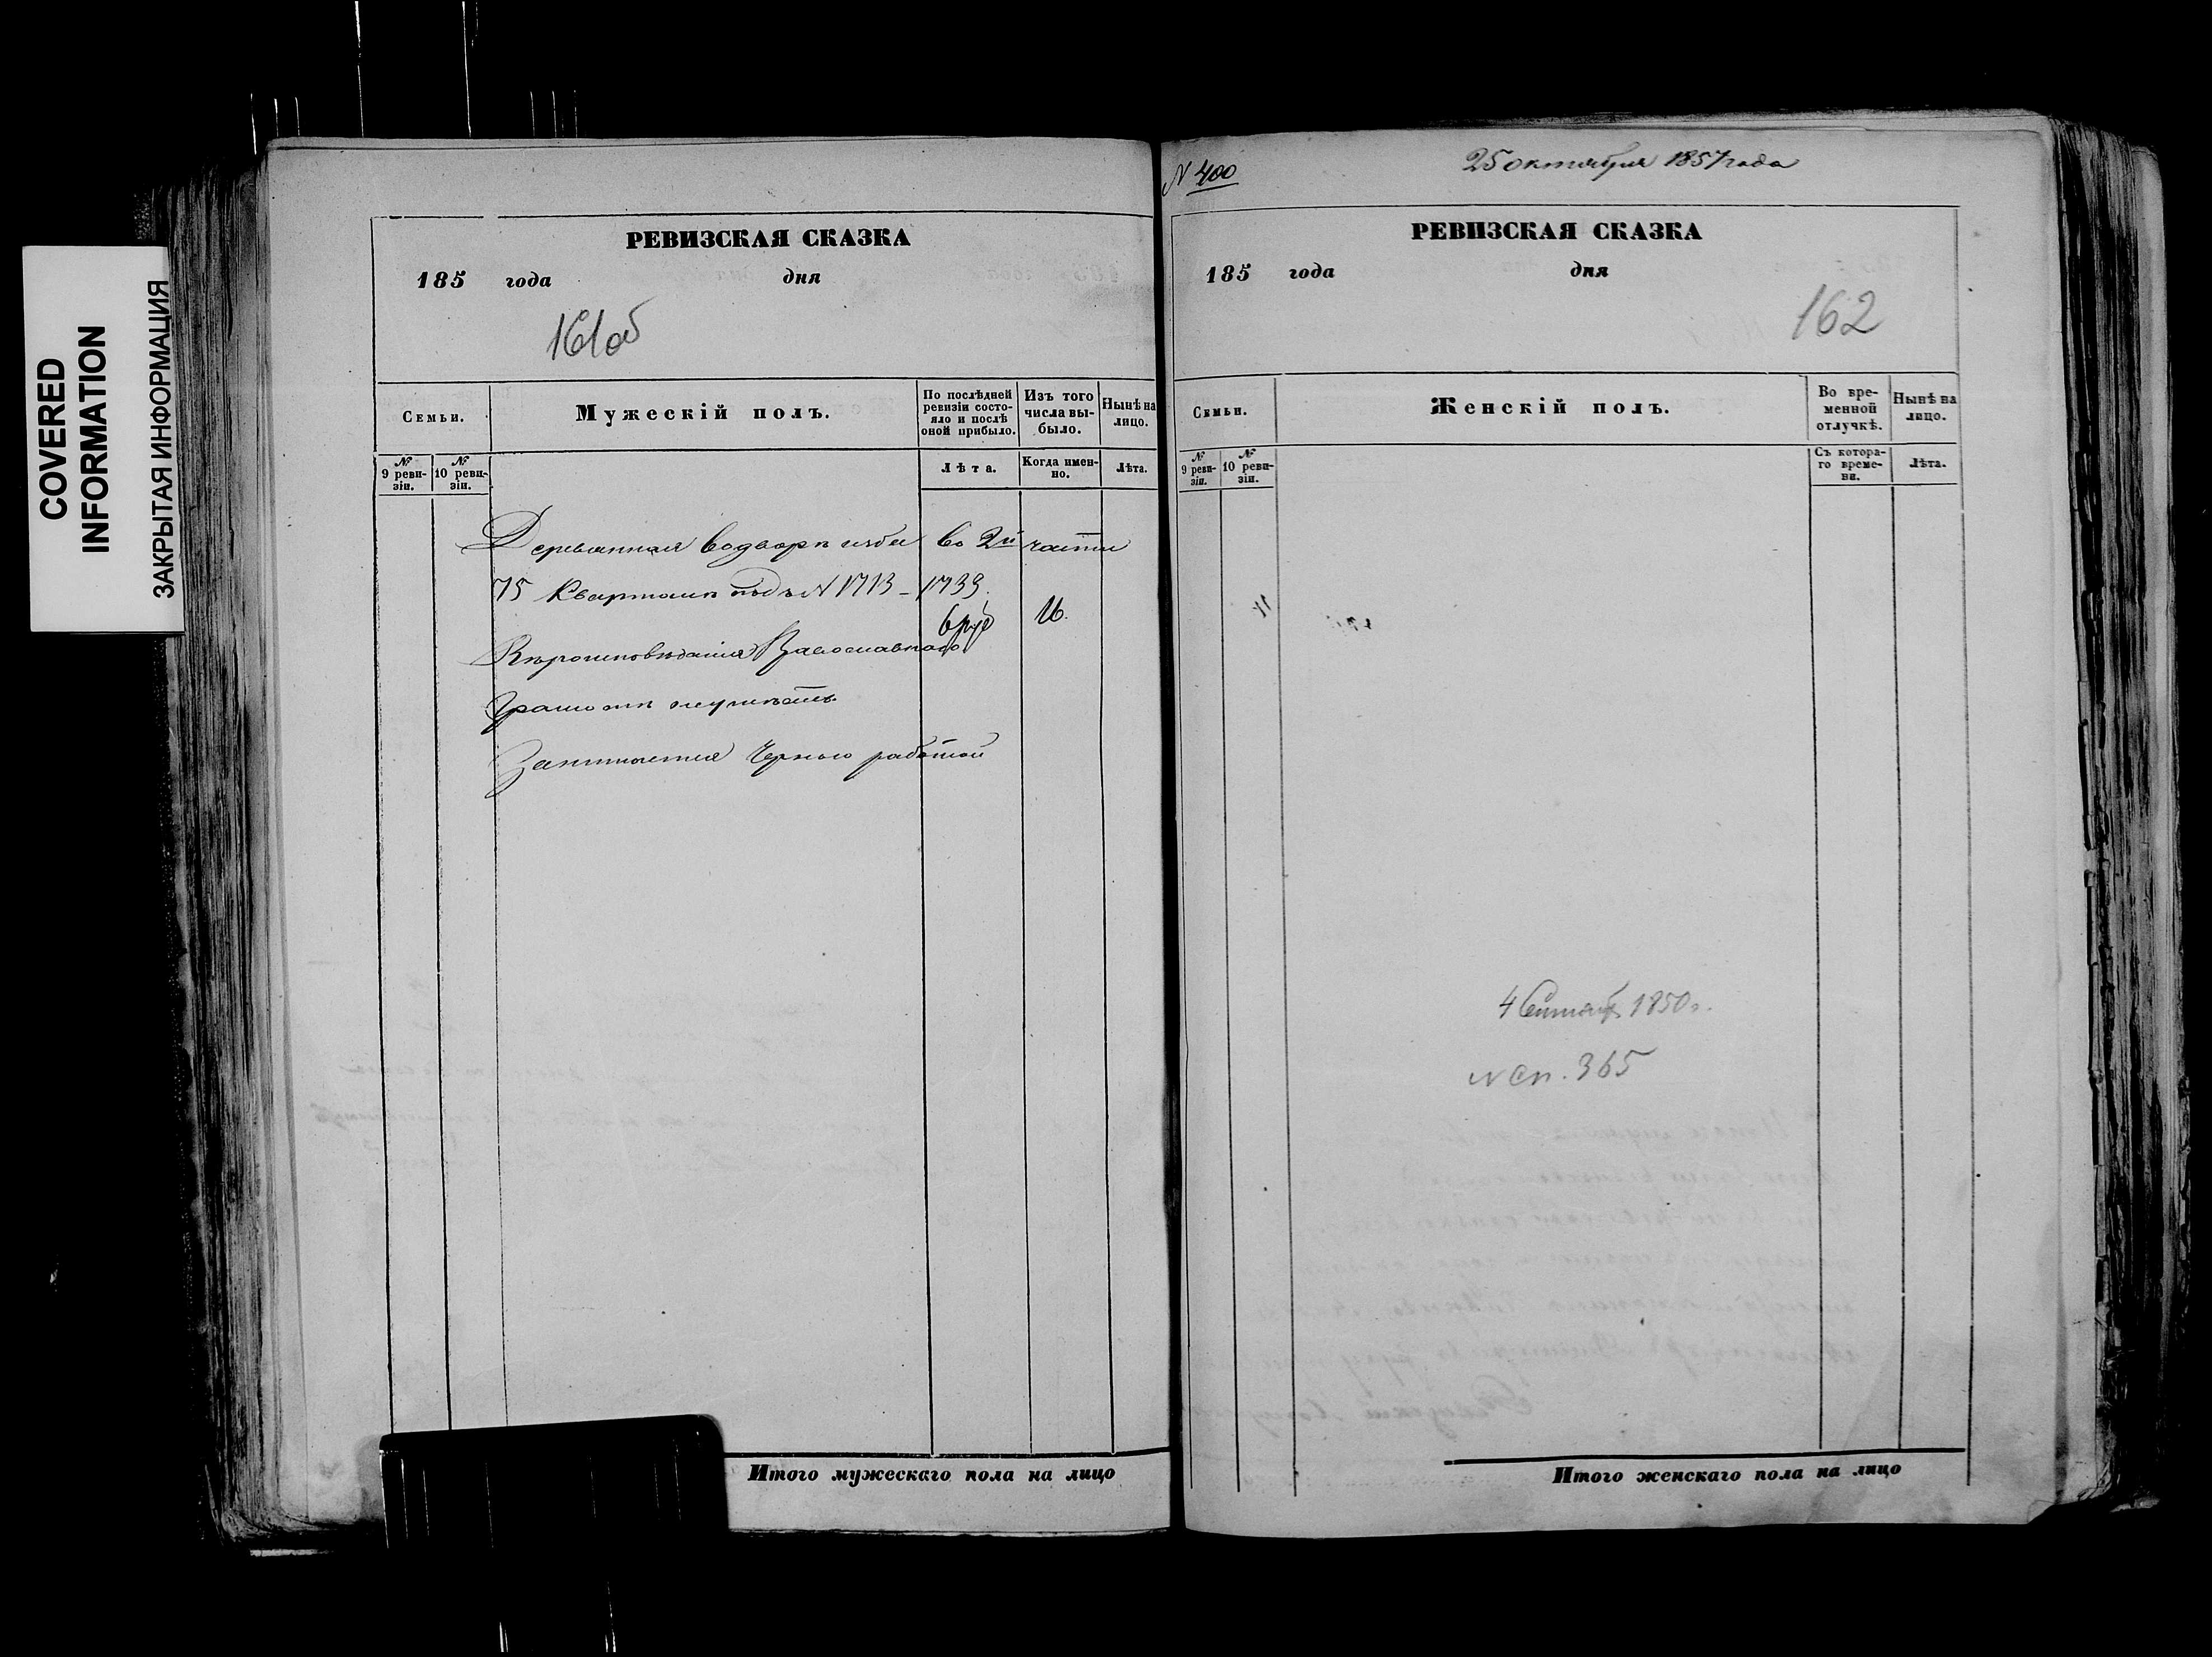 COVERED
INFORMATION
ЗАКРЫТАЯ ИНФОРМАЦИЯ
РЕВИЗСКАЯ СКАЗКА
185 года дня
161об
Семьи.
Мужескій полъ.
По послѣдней ревизіи состояло и послѣ оной прибыло.
Изъ того числа выбыло.
Нынѣ на лицо.
№ 9 ревизіи.
№ 10 ревизіи.
Лѣта.
Когда именно.
Лѣта.
Деревянная водворѣ изба во 2й части
75 Кварталѣ подъ N 1713 - 1739.
6 руб 16.
Вѣроисповѣданія Православнаго
Грамотѣ неумѣетъ
Занимается Черною работой
Итого мужескаго пола на лицо
N 400
25 октября 1857 года
РЕВИЗСКАЯ СКАЗКА
185 года дня
162
Семьи.
Женскій полъ.
Во временной отлучкѣ.
Нынѣ на лицо.
№ 9 ревизіи.
№ 10 ревизіи.
Съ котораго времени.
Лѣта.
4 Сентяб 1850 г.
N сп. 365
Итого женскаго пола на лицо